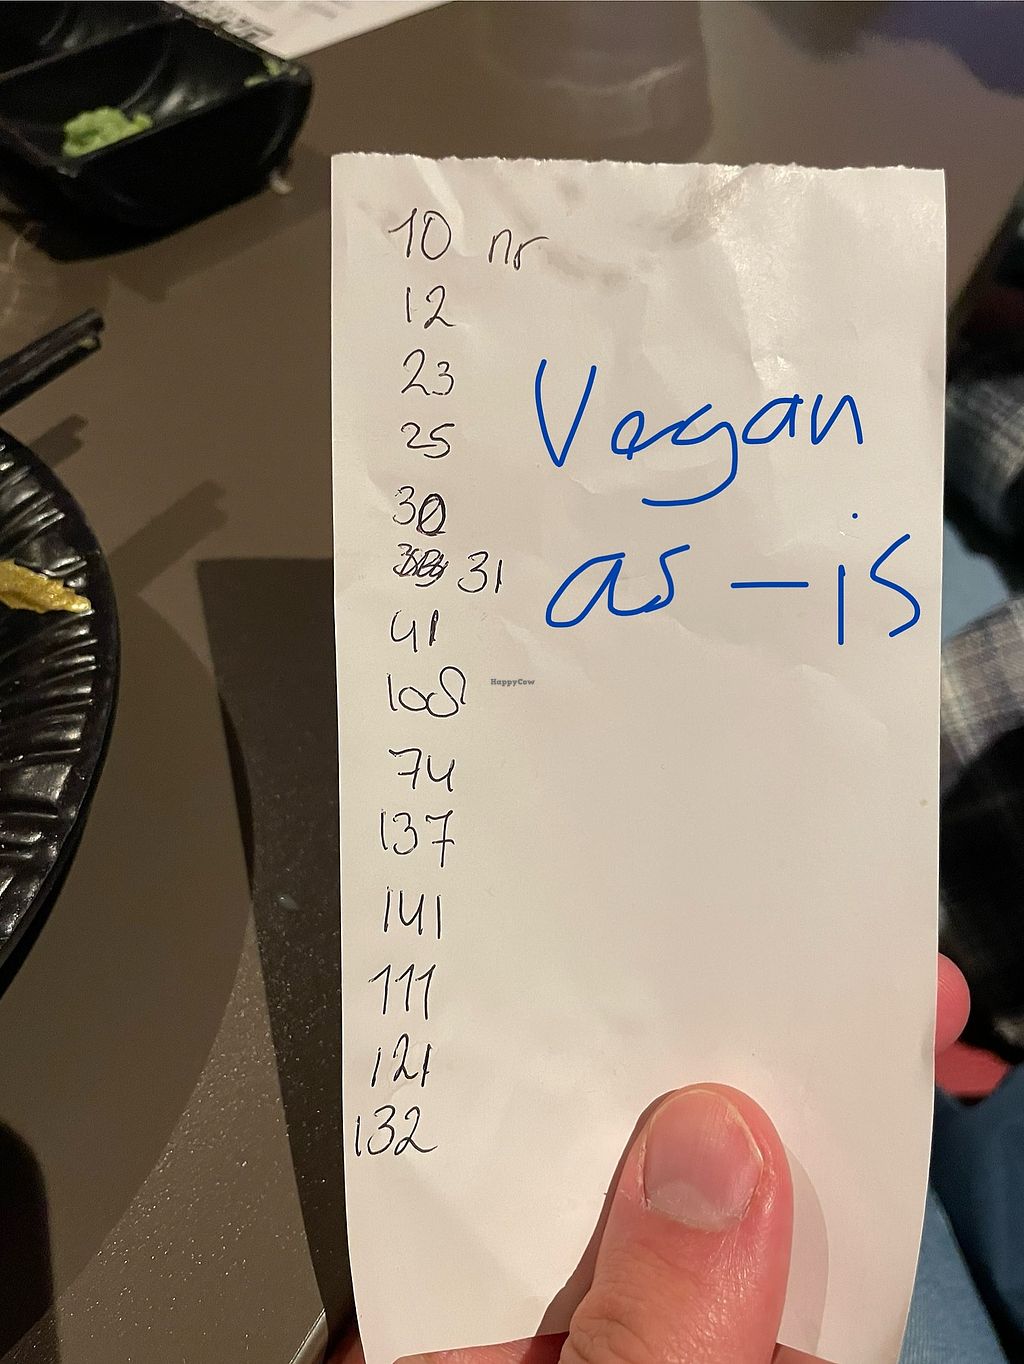 10 nr
12
23
25
30
31
41
108
74
137
141
111
121
132
Vegan
as-is
HappyCow